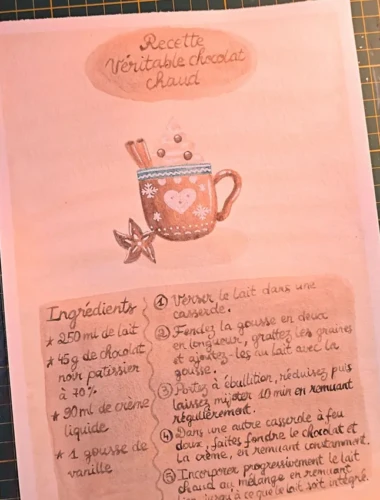 Recette
Véritable chocolat
chaud
Ingrédients
★ 250 ml de lait
★ 45g de chocolat
noir patissier
à 70%
★ 90 ml de crème
liquide
★ 1 gousse de
vanille
① Verser le lait dans une
casserole.
② Fendez la gousse en deux
en longueur, grattez les graines
et ajoutez-les au lait avec la
gousse.
③ Portez à ébullition, réduisez puis
laissez mijoter 10 min en remuant
régulièrement.
④ Dans une autre casserole à feu
doux, faites fondre le chocolat et
la crème, en remuant constamment.
⑤ Incorporer progressivement le lait
chaud au mélange en remuant
jusqu'à ce que le lait soit intégré.